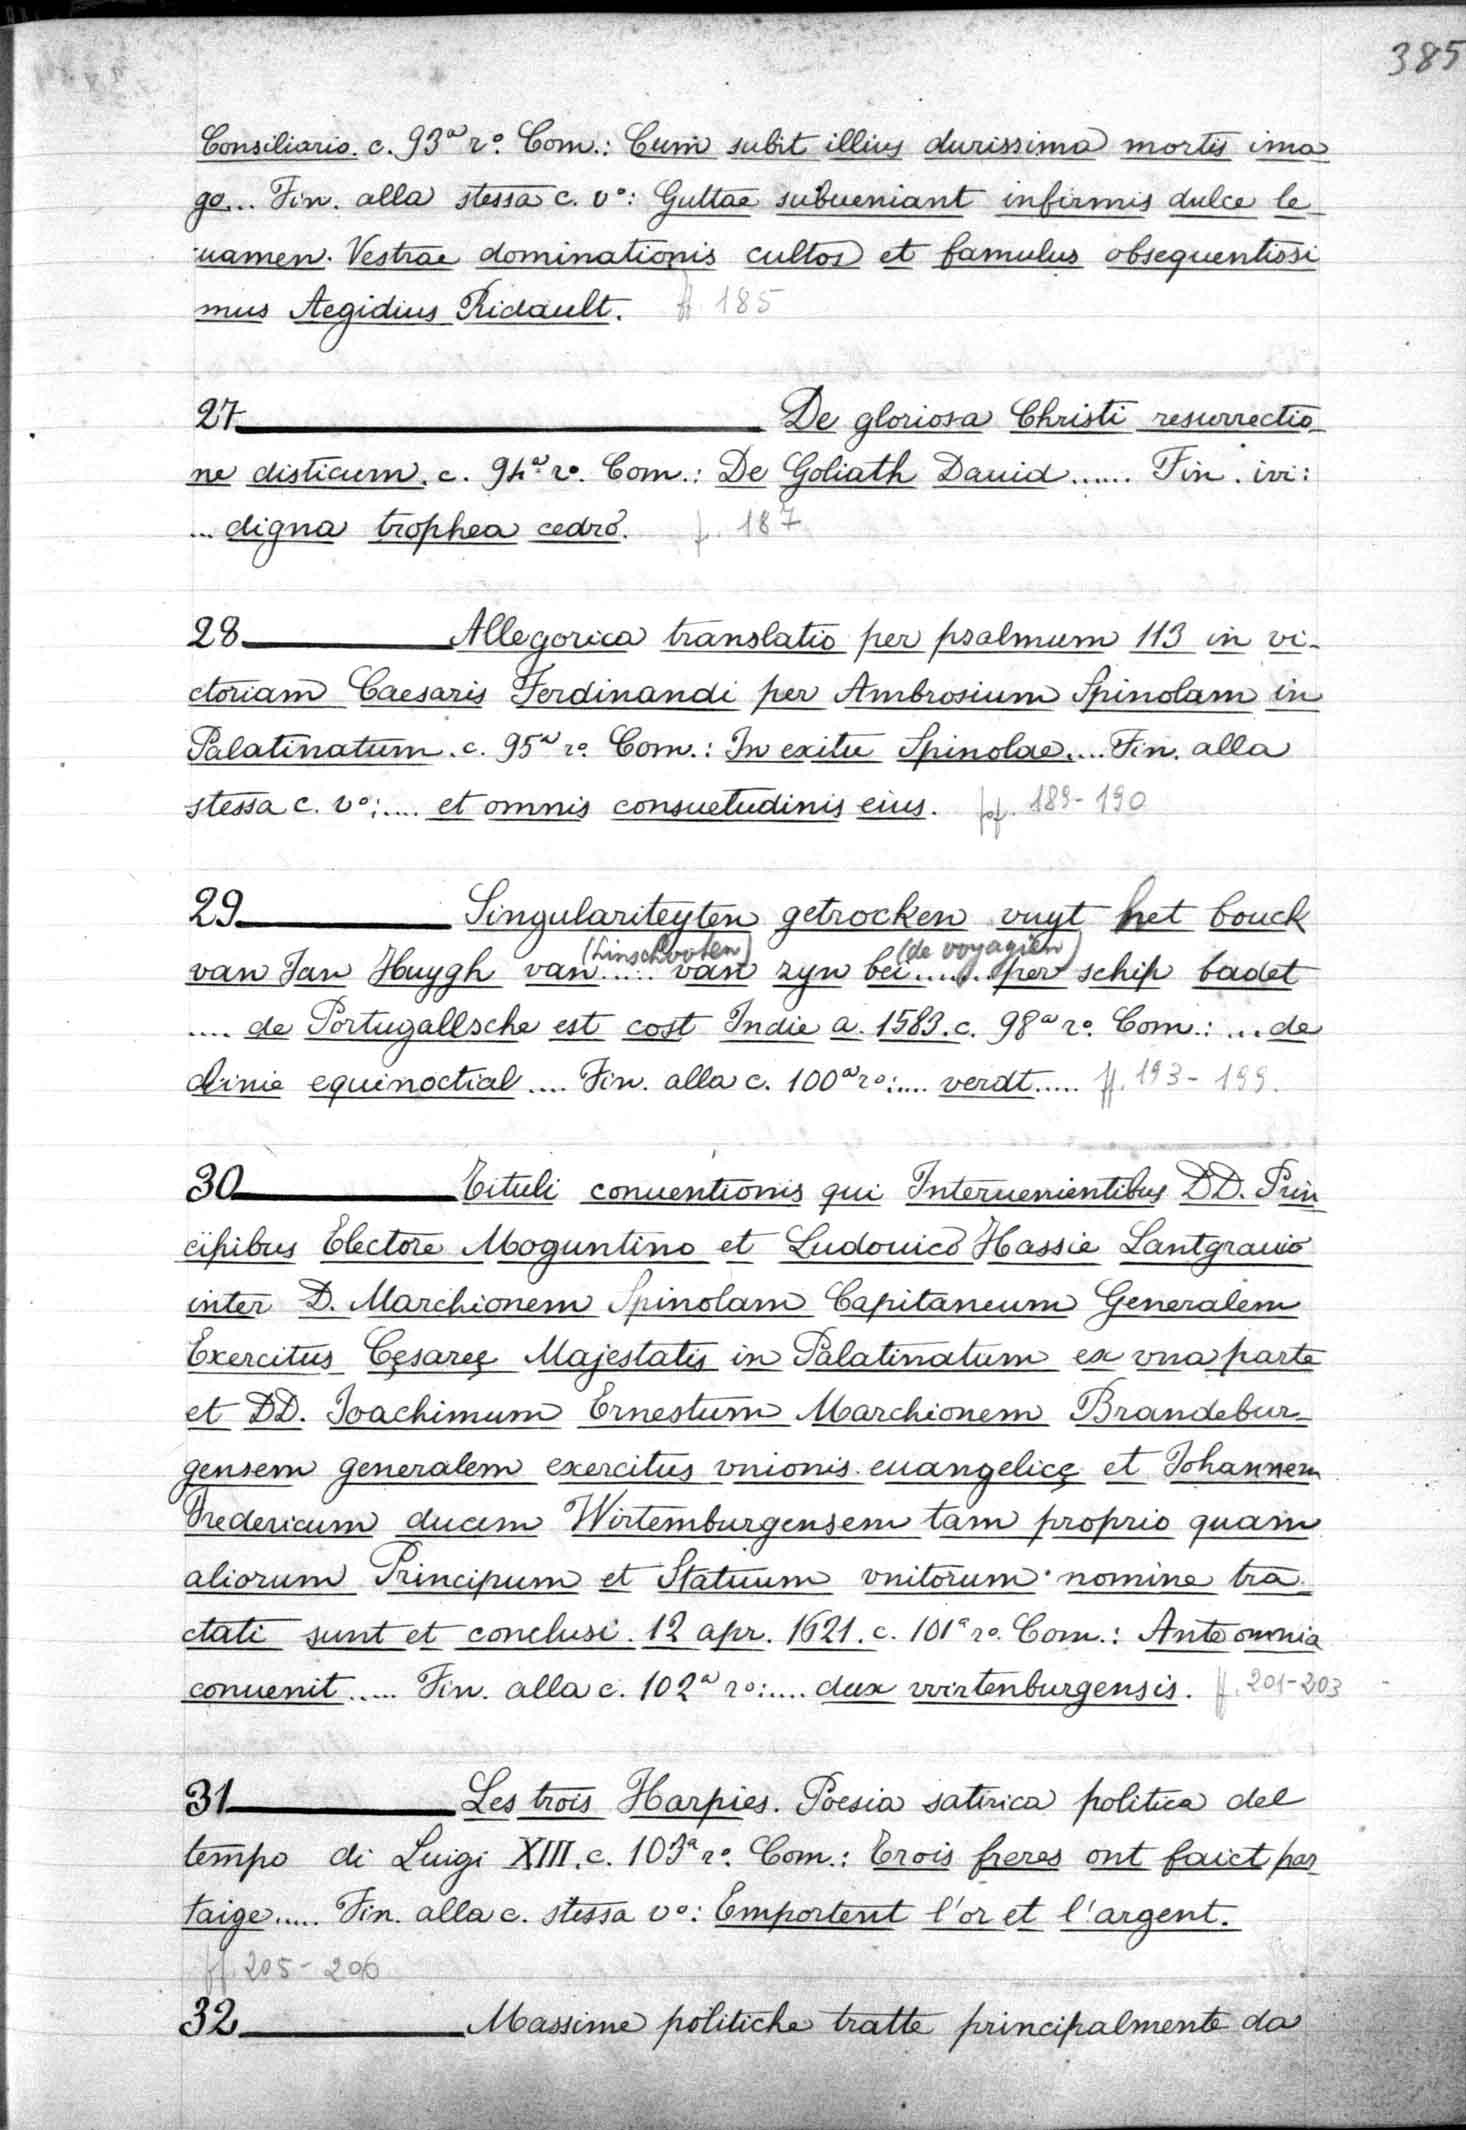 385
Consiliario. c. 93ª rº. Com.: Cum subit illius durissima mortis ima
go... Fin. alla stessa c. vº: Guttae subueniant infirmis dulce le
uamen. Vestrae dominationis cultor et famulus obsequentissi
mus Aegidius Ridault. ff 185
27 De gloriosa Christi resurrectio
ne disticum. c. 94ª rº. Com.: De Goliath Dauid...... Fin. ivi:
... digna trophea cedro. f. 187
28 Allegorica translatio per psalmum 113 in vi-
ctoriam Caesaris Ferdinandi per Ambrosium Spinolam in
Palatinatum. c. 95ª rº. Com.: In exitu Spinolae.... Fin. alla
stessa c. vº:.... et omnis consuetudinis eius. ff. 189-190
29 Singulariteyten getrocken vuyt het bouck
(Linschooten) (de voyagien)
van Jan Huygh van..... van zyn bei...... per schip badet
.... de Portugallsche est cost Indie a. 1583. c. 98ª rº. Com.: ... de
linie equinoctial.... Fin. alla c. 100ª rº:.... verdt..... ff. 193-199.
30 Tituli conuentionis qui Interuenientibus DD. Prin
cipibus Electore Moguntino et Ludouico Hassie Lantgrauio
inter D. Marchionem Spinolam Capitaneum Generalem
Exercitus Cęsareę Majestatis in Palatinatum ex vna parte
et DD. Joachimum Ernestum Marchionem Brandebur-
gensem generalem exercitus vnionis euangelicę et Johannem
Fredericum ducem Wirtemburgensem tam proprio quam
aliorum Principum et Statuum vnitorum nomine tra-
ctati sunt et conclusi. 12 apr. 1621. c. 101ª rº. Com.: Ante omnia
conuenit..... Fin. alla c. 102ª rº:.... dux wirtenburgensis. ff. 201-203
31 Les trois Harpies. Poesia satirica politica del
tempo di Luigi XIII. c. 103ª rº. Com.: Trois freres ont faict par
taige..... Fin. alla c. stessa vº: Emportent l'or et l'argent.
ff. 205-206
32 Massime politiche tratte principalmente da